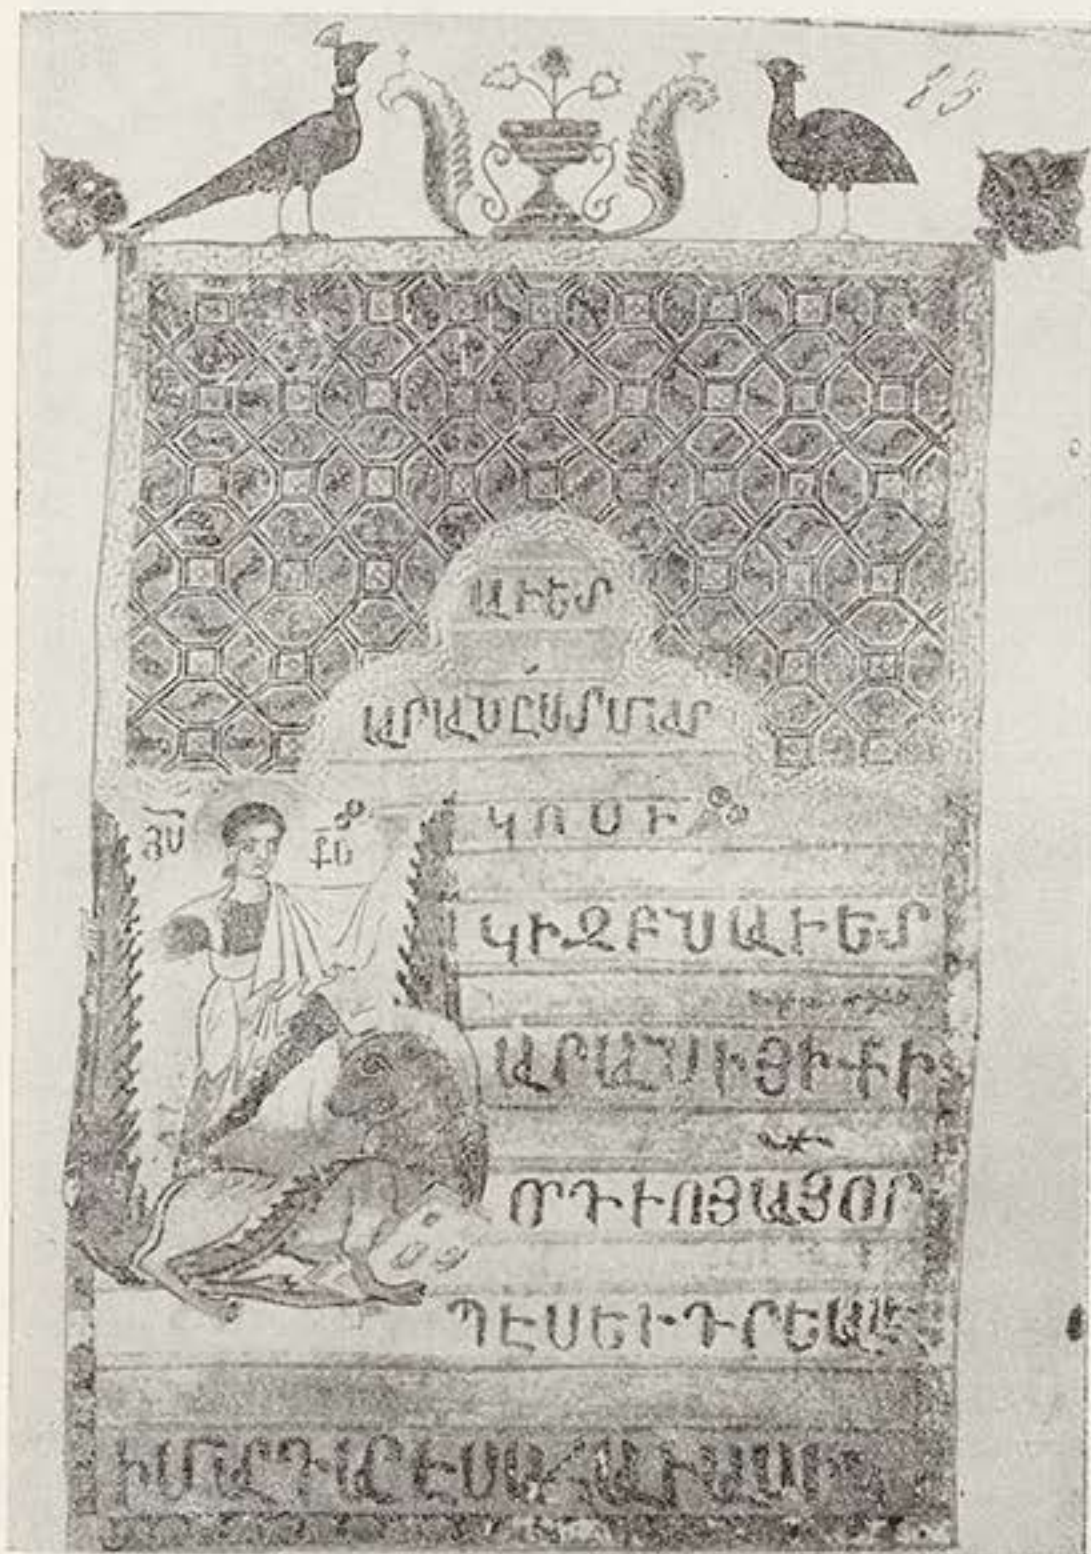 ԱՒԵՏ
ԱՐԱՆԸՍՏՄԱՐ
ՅՍ ՔՍ
ԿՈՍԻ
ԿԻԶԲՆԱՒԵՏ
ԱՐԱՆԻՅԻՔԻ
ՈՐԴՒՈՅԱՅՈՐ
ՊԷՍԵՒԳՐԵԱԼԷ
ԻՄԱՐԳԱՐԷՍԱՀԱՒԱՍԻ